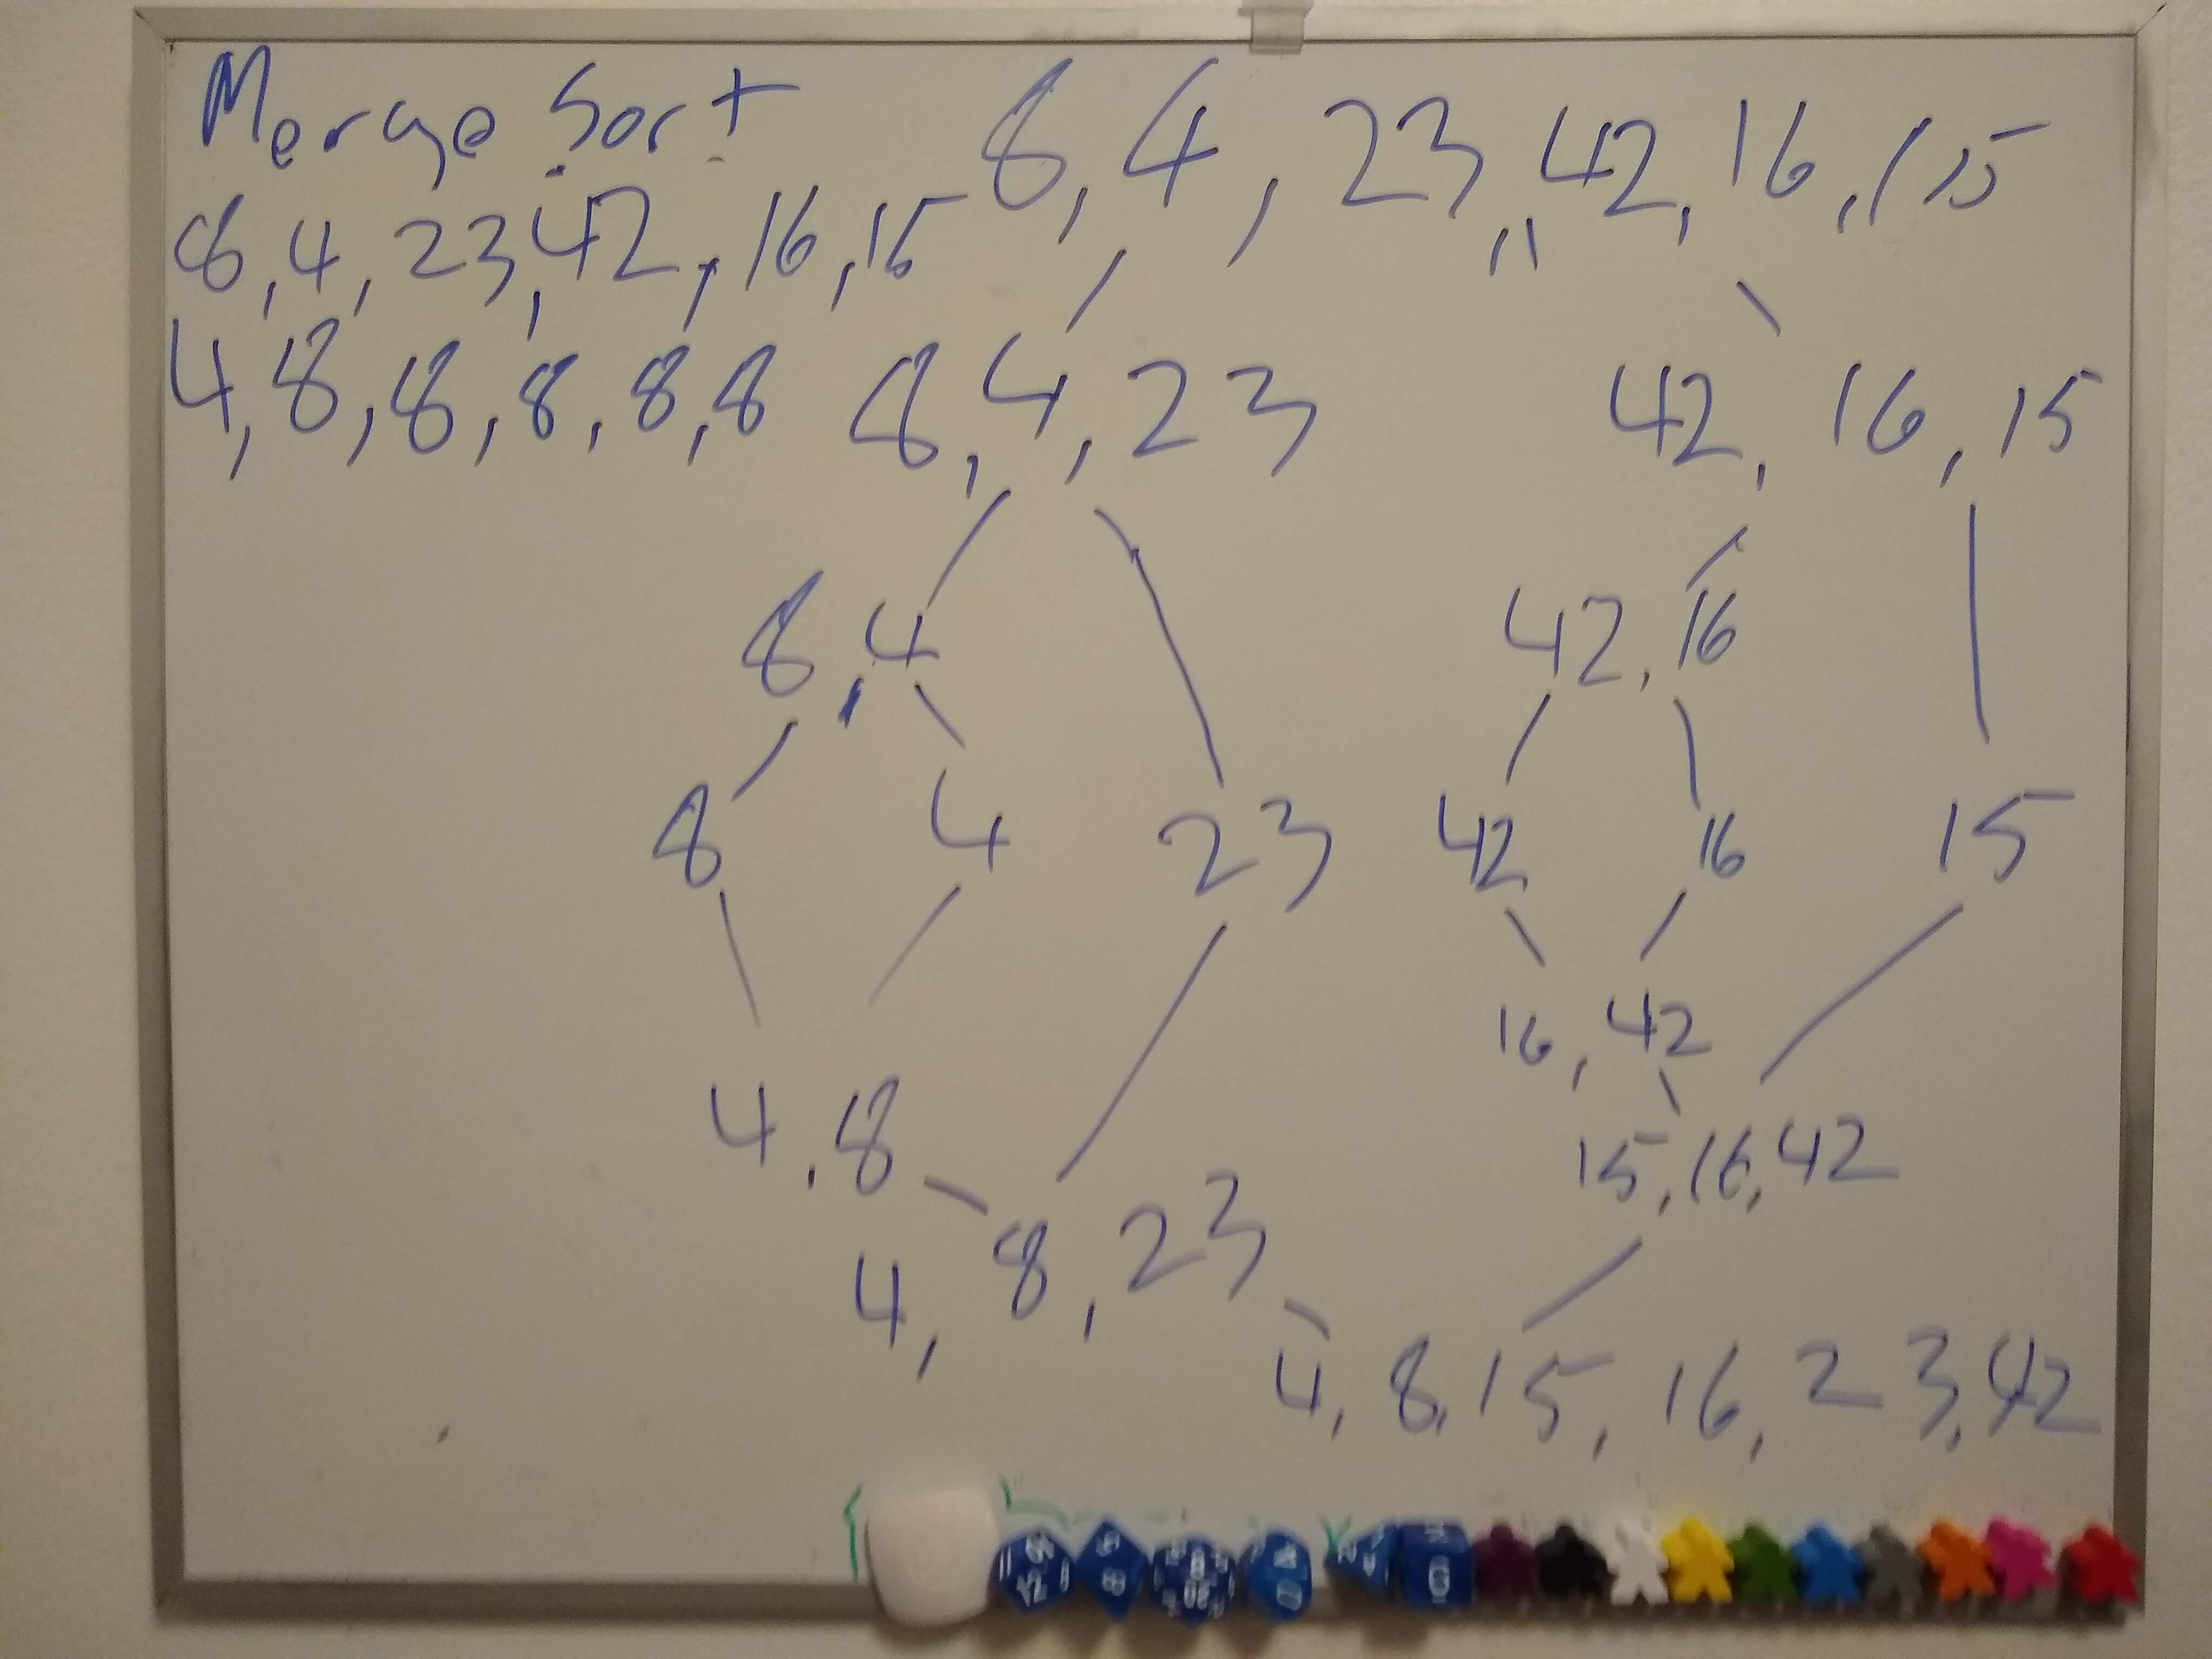 Merge Sort
8, 4, 23, 42, 16, 15
8, 4, 23, 42, 16, 15
4, 8, 8, 8, 8, 8
8, 4, 23
42, 16, 15
8, 4
42, 16
8
4
23
42
16
15
16, 42
4, 8
15, 16, 42
4, 8, 23
4, 8, 15, 16, 23, 42